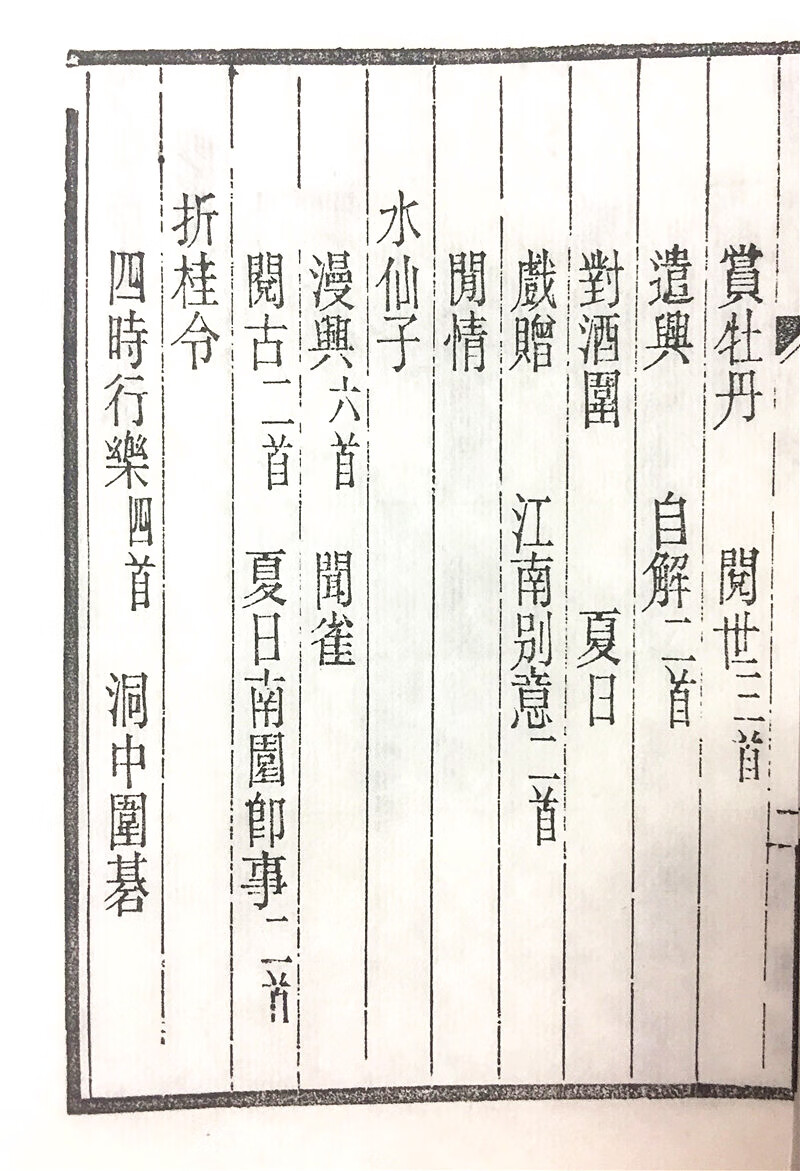 賞牡丹　閱世三首
遣興　自解二首
對酒圍　夏日
戲贈　江南別意二首
閒情
水仙子
漫興六首　聞雀
閱古二首　夏日南園卽事二首
折桂令
四時行樂四首　洞中圍碁